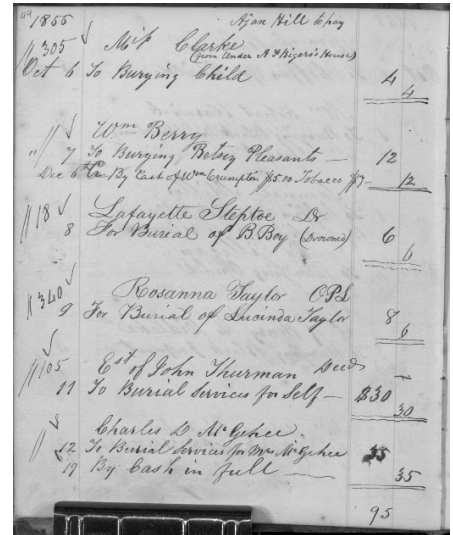 44 1855 Ajax Hill to pay
// 305 Mrs Clarke
(from Under A F Bigers's House)
Oct 6 To Burying Child 4
4
// Wm Berry
" 7 To Burying Betsey Pleasants — 12
Dec 6th Cr By Cash of Wm Crumpton $5.00 Tobacco $7 — 12
// 18 Lafayette Steptoe Dr
8 For Burial of B. Boy (Drowned) 6
6
// 340 Rosanna Taylor OPS
9 For Burial of Lucinda Taylor 8
6
// 105 Est of John Thurman Decd
11 To Burial Services for Self — $30
30
// Charles D McGehee
12 To Burial Services for Mrs McGehee 35
19 By Cash in full — 35
95